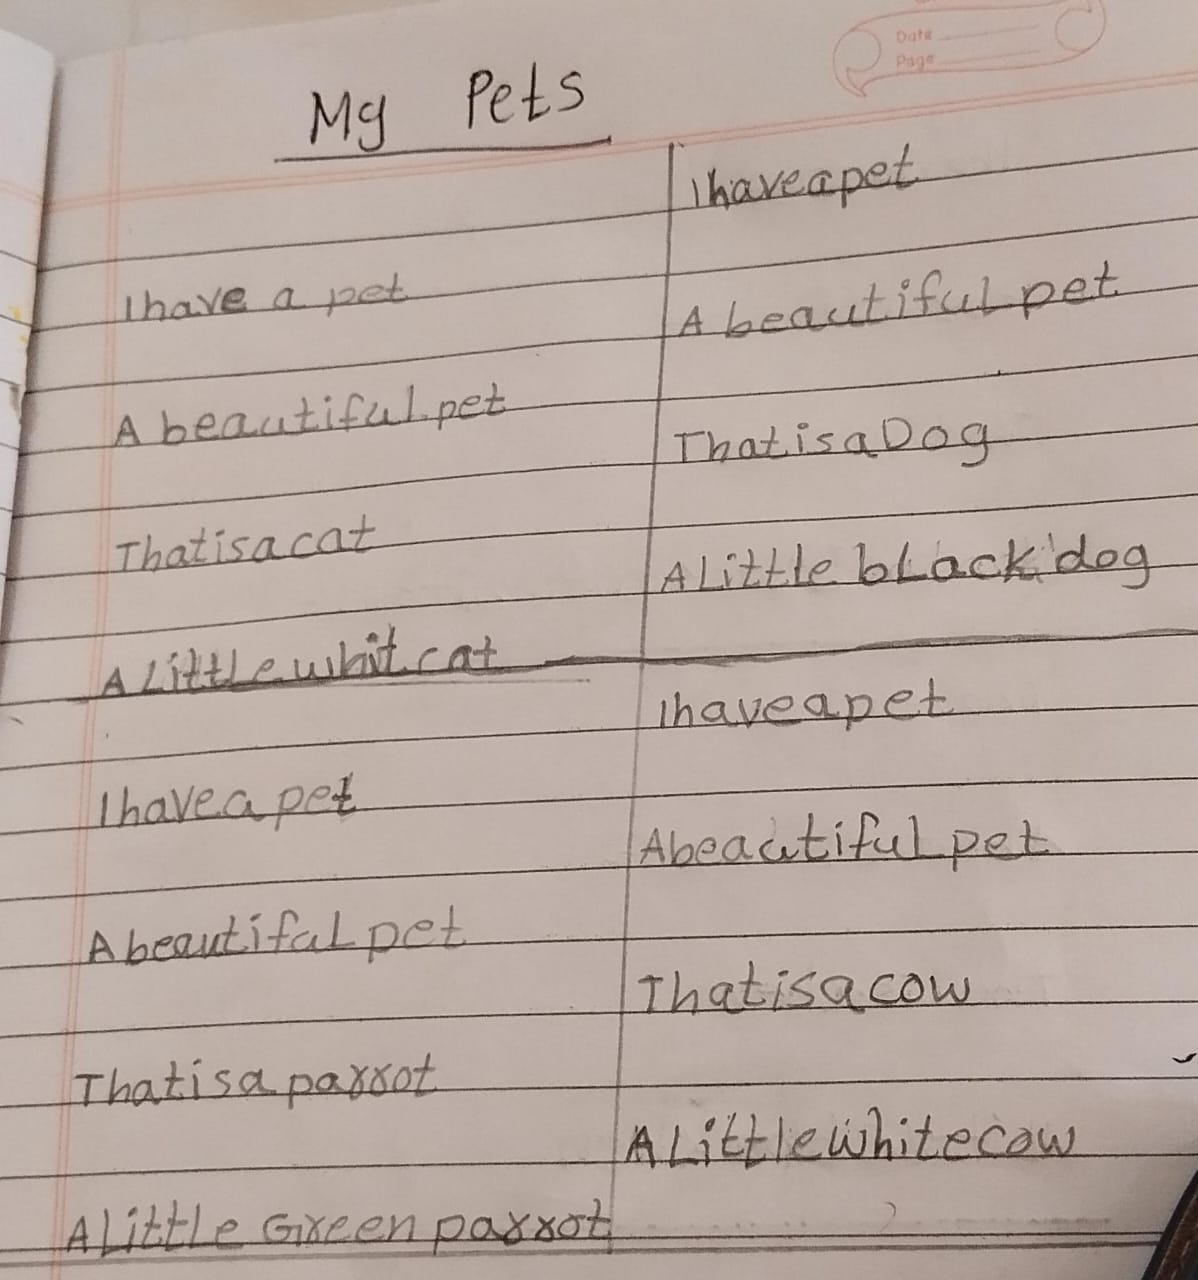 Date
Page
My Pets
I have a pet
A beautiful pet
That is a cat
A Little whit cat
I have a pet
A beautiful pet
That is a parrot
A Little Green parrot
I have a pet
A beautiful pet
That is a Dog
A Little bLack dog
I have a pet
A beautiful pet
That is a cow
A Little white cow